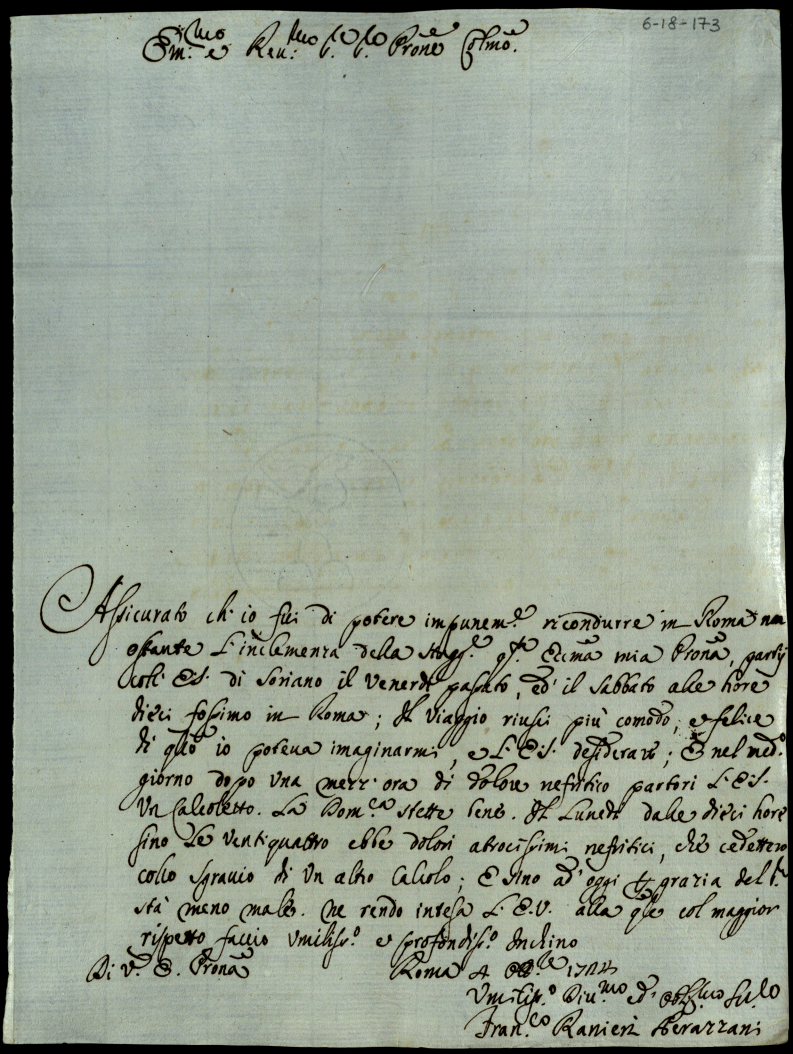 6-18-173
Em.mo e Reu.mo Sig.e Sig.e Prone Colmo.
Assicurato ch'io fui di potere impunem.e ricondurre in Roma non
ostante l'inclemenza della Stagg.e q.ta Eccma mia Prona, partij
coll' E.S. di Soriano il Venerdì passato, ed' il Sabbato alle hore
dieci fossimo in Roma; Il viaggio riuscì più comodo, e felice
di q.llo io poteua imaginarmi, e L'E.S. desiderare; E nel med.o
giorno dopo una mezz'ora di dolore nefritico partorì L'E.S.
un Calcoletto. La Dom.ca stette bene. Il Lunedì dalle dieci hore
sino le ventiquattro ebbe dolori atrocissimi nefritici, che cedettero
collo sgrauio di un altro Calcolo; E sino ad'oggi per grazia del S.re
stà meno male. Ne rendo intesa L'E.V. alla q.le col maggior
rispetto faccio umiliss.o e profondiss.o Inchino
Di V.a E. Prona Roma 4 1724
Umiliss.o Diu.mo ed' Obblig.mo Ser.
Fran.co Ranieri